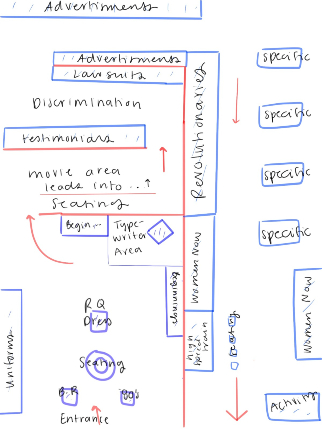 Advertisments
Advertisments
Lawsuits
Discrimination
testimonials
movie area
leads into...↑
Seating
Begin...
Type-
writer
Area
Revolutionaries
Women Now
Beginnings
high
speed
train
Seating
specific
specific
specific
specific
Women Now
Activity
Uniforms
R Q
Dress
Seating
B.R
80s
Entrance